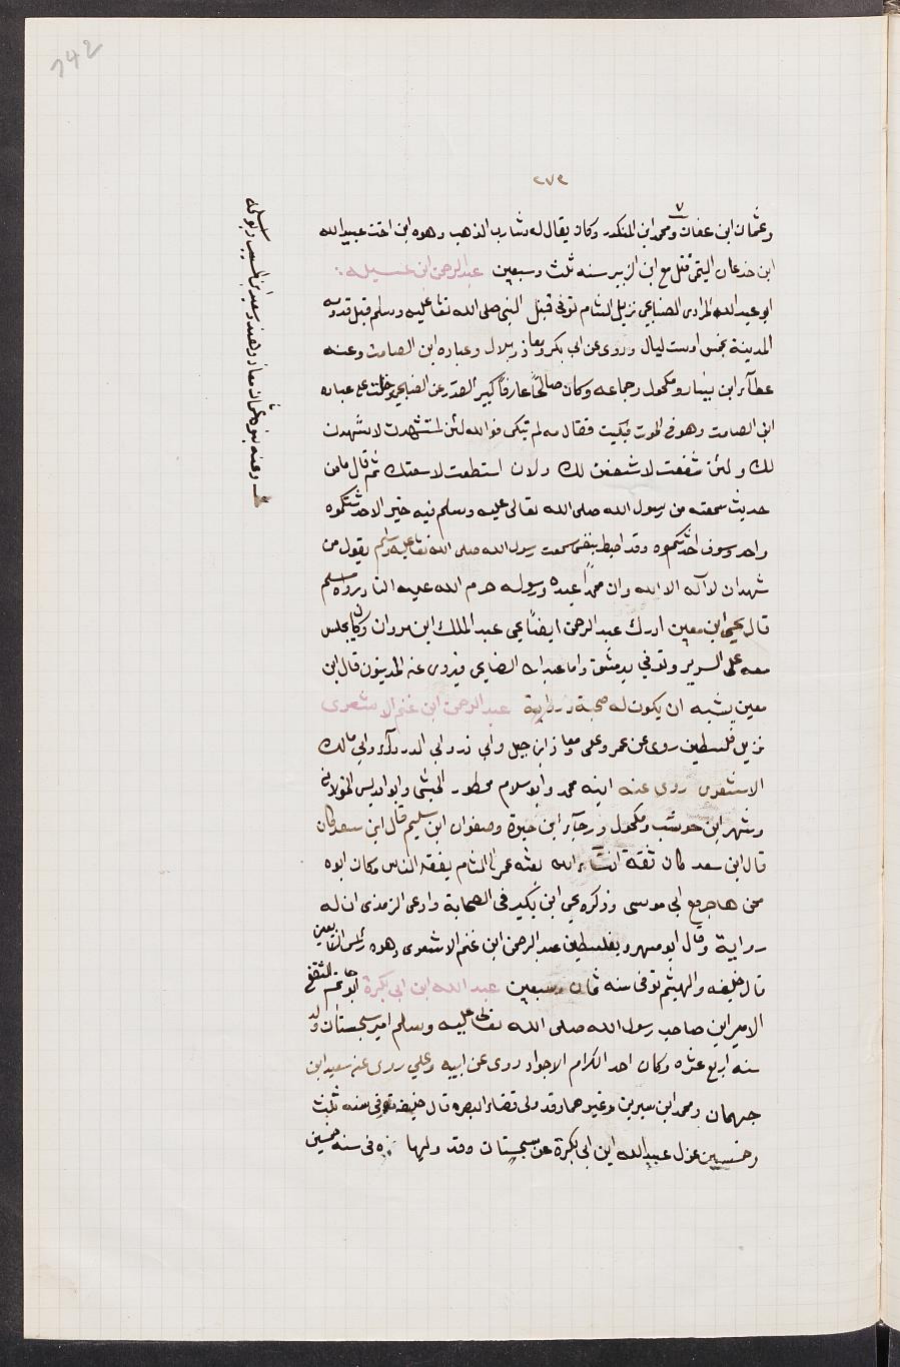 142
٢٧٩
وعثمان ابن عفان ومحمد ابن المنكدر وكان يقال له شارب الذهب وهوه ابن اخت عبيد الله
ابن جدعان التيمي قتل مع ابن الزبير سنه ثلث وسبعين عبد الرحمن ابن عسيله
ابو عبد الله المرادي الصنابحي نزيل الشام توفى قبل النبي صلى الله تعا عليه وسلم قبل قدومه
المدينة بخمس اوست ليال وروى عن ابى بكر ومعاذ وبلال وعباده ابن الصامت وعنه
عطآء ابن يسار ومكحول وجماعه وكان صالحًا عارفًا كبير القدر عن الصنابحي دخلت على عباده
ابن الصامت وهو فى الموت فبكيت فقال مه لم تبكى فوالله لئن استشهدت لاشهدن
لك ولئن شفعت لاشفعن لك ولان استطعت لانفعنك ثم قال مامن
حديث سمعته من رسول الله صلى الله تعالى عليه وسلم فيه خير الاحدثتكموه
واحد وسوف احدثكموه وقد احيط بنفسى سمعت رسول الله صلى الله تعا عليه وسلم يقول من
شهد ان لا آله الا الله وان محمدًا عبده ورسوله حرم الله عليه النار رواه مسلم
قال يحيى ابن معين ادرك عبد الرحمن ايضًا عبد الملك ابن مروان وكان يجلس
معه على السرير وتوفي بدمشق واما عبد الله الصنابحى فيروى عنه المدينون قال ابن
معين يشبه ان يكون له صحبة ورواية عبد الرحمن ابن غنم الاشعرى
نزيل فلسطين روى عن عمر وعلى ومعاذ ابن جبل وابى ذر وابى الدردآء وابى مالك
الاشعرى روى عنه ابنه محمد وابو سلام ممطور الحبشى وابو ادريس الخولانى
وشهر ابن حوشب ومكحول ورجآء ابن حيوة وصفوان ابن سليم قال ابن سعد كان
قال ابن سعد كان ثقة انشآء الله بعثه عمر الى الشام يفقه الناس وكان ابوه
ممن هاجر مع ابى موسى وذكره يحيى ابن بكير فى الصحابة وادعى الترمذى ان له
رواية وقال ابو مسهر بفلسطين عبد الرحمن ابن غنم الاشعرى وهوه رأس التابعين
قال خليفه والهيثم توفى سنه ثمان وسبعين عبد الله ابن ابى بكرة ابو حاتم الثقفى
الامير ابن صاحب رسول الله صلى الله تعالى عليه وسلم امير سجستان ولد
سنه اربع عشره وكان احد الكرام الاجواد روى عن ابيه وعلي روى عنه سعيد ابن
جمهان ومحمد ابن سيرين وغيرهما وقد ولى قضاء البصره قال خليفه توفى سنه ثلث
وخمسين عزل عبيد الله ابن ابى بكرة عن سجستان وقد وليها فى سنه خمسين
وعنه بنوه عثمان ومعاذ وهند وسعيد ابن المسيب وابو سلمه